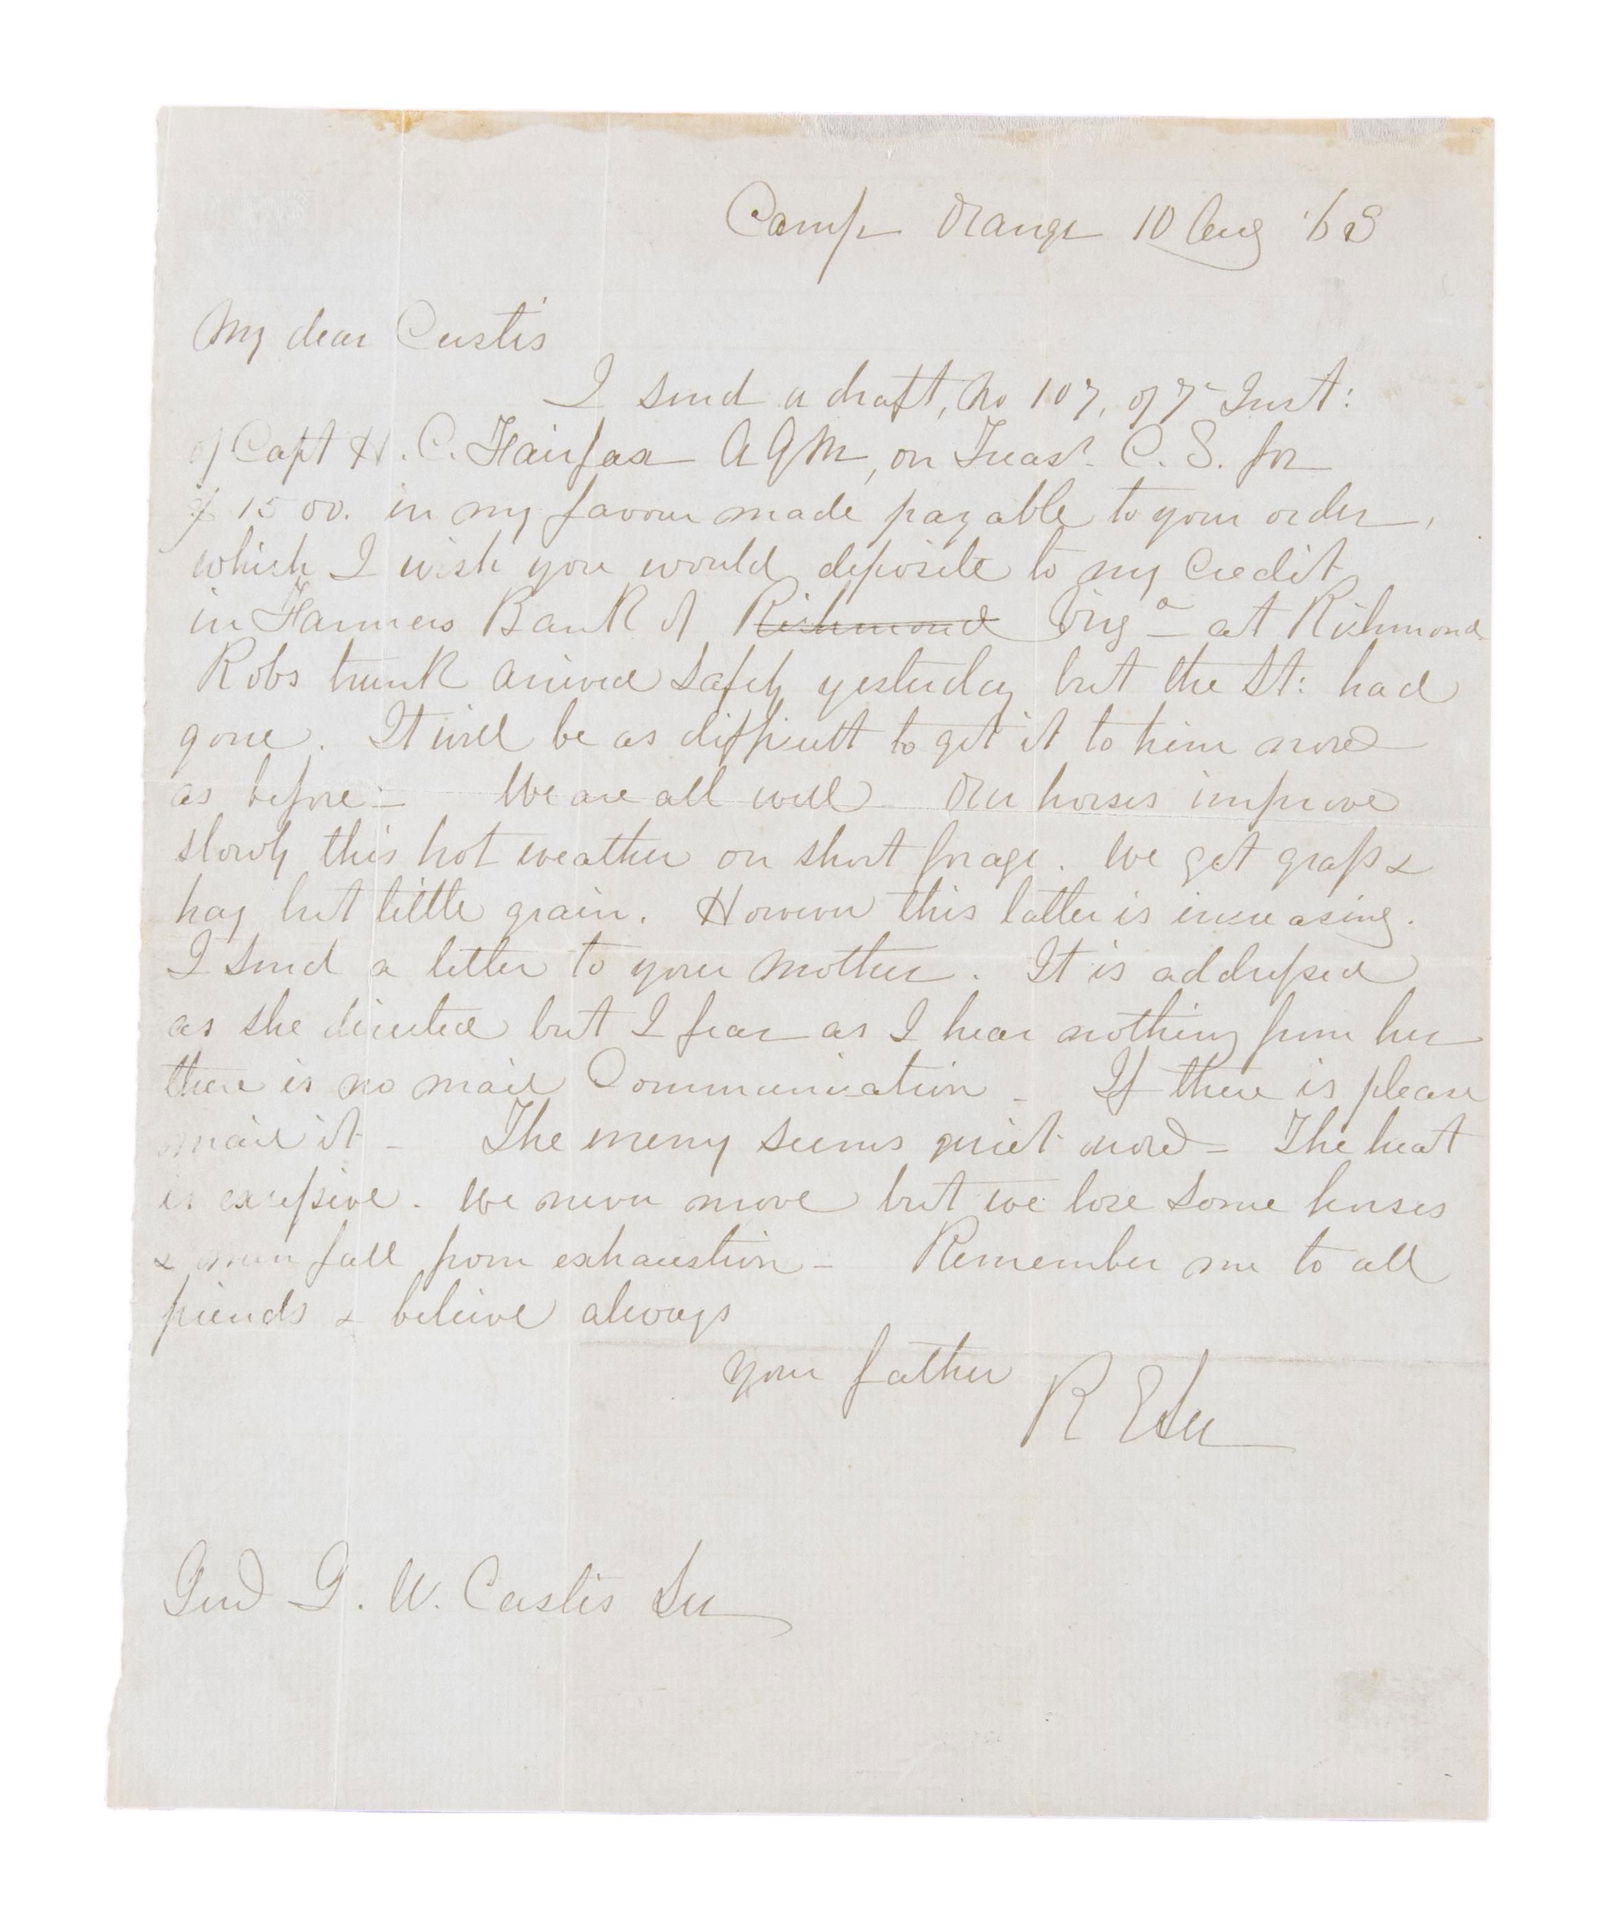 Camp Orange 10 Aug '63
My dear Custis
I send a draft, No 107, of 7 Inst:
of Capt H. C. Fairfax AQM, on Treasr. C. S. for
$ 1500. in my favour made payable to your order,
which I wish you would deposite to my credit
in Farmers Bank of Richmond Virga at Richmond
Robs trunk arrived safely yesterday but the Lt: had
gone. It will be as difficult to get it to him now
as before - We are all well Our horses improve
slowly this hot weather on short forage. We get grass &
hay but little grain. However this latter is increasing.
I send a letter to your mother. It is addressed
as she directed but I fear as I hear nothing from her
there is no mail Communication - If there is please
mail it - The enemy seems quiet now - The heat
is excessive. We never move but we lose some horses
& men fall from exhaustion - Remember me to all
friends & beleive always
your father R E Lee
Genl G. W. Custis Lee